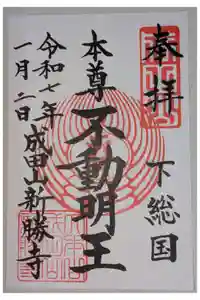 奉拝
下総国
本尊
不動明王
令和七年
一月二日
成田山新勝寺